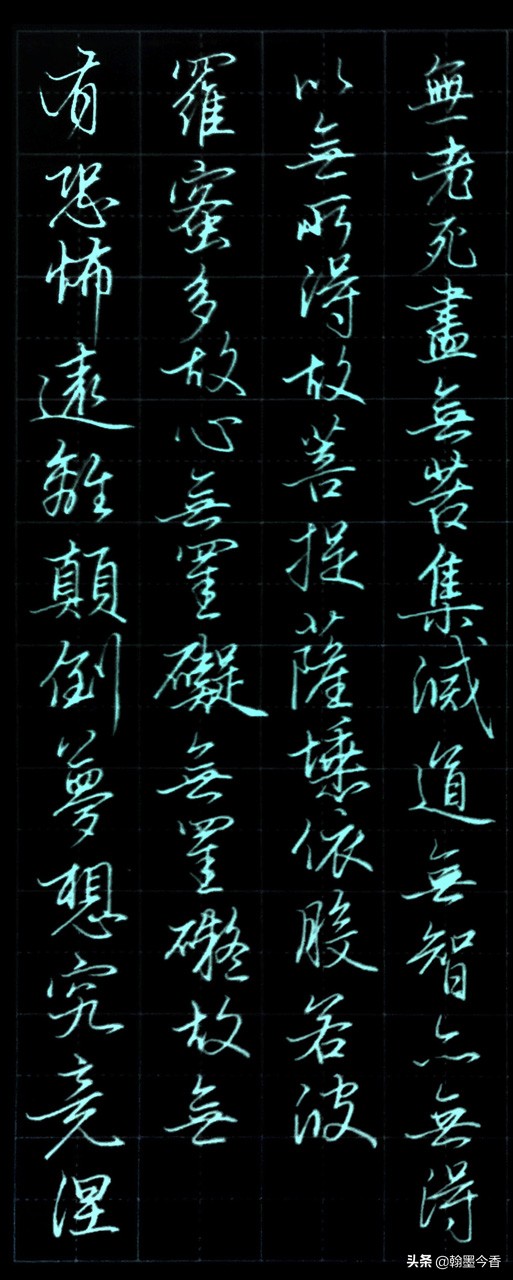 無老死盡無苦集滅道無智亦無得
以無所得故菩提薩埵依般若波
羅蜜多故心無罣礙無罣礙故無
有恐怖遠離顛倒夢想究竟涅
头条 @翰墨今香